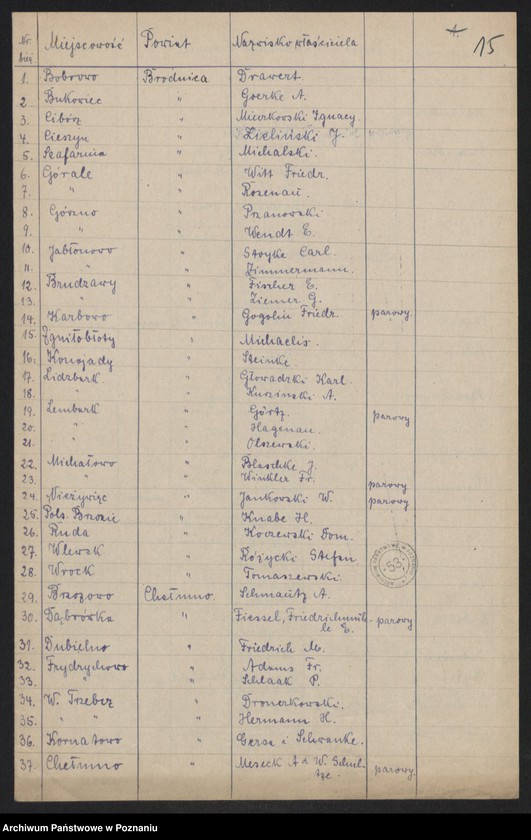 15
Nr. bież. Miejscowość Powiat Nazwisko właściciela
1. Bobrowo Brodnica Drawert.
2. Bukowiec " Goerke A.
3. Cibórz " Mierkowski Ignacy.
4. Cieszyn " Zieliński J.
5. Szafarnia " Michalski.
6. Górale " Witt Friedr.
7. " " Rozenau.
8. Górzno " Pzanowski
9. " " Wendt E.
10. Jabłonowo " Stoyke Carl.
11. " " Zimmermann.
12. Brudzawy " Fischer E.
13. " " Ziemer G.
14. Karbowo " Gogolin Friedr. parowy.
15. Zgniłobłoty " Michaelis.
16. Konojady " Steinke
17. Lidzbark " Głowadzki Karl.
18. " " Kuszinski A.
19. Lembark " Görtz. parowy
20. " " Hagenau.
21. " " Olszewski.
22. Michałowo " Blaschke J.
23. " " Winkler Fr. parowy
24. Nieżywięc " Jankowski W. parowy
25. Pols. Brzozie " Knabe H.
26. Ruda " Koczewski Dom.
27. Wlewsk " Różycki Stefan
28. Wrock " Tomaszewski.
29. Brzozowo Chełmno. Schmautz A.
30. Dąbrówka " Fiessel, Friedrichmüh- parowy
le E.
31. Dubielno " Friedrich M.
32. Frydrychowo " Adams Fr.
33. " " Schlaak P.
34. W. Trzebcz " Dronerkowski.
35. " " " Hermann H.
36. Kornatowo " Gersz i Schwanke.
37. Chełmno " Meseck A i W. Schul- parowy.
tze.
53
Archiwum Państwowe w Poznaniu